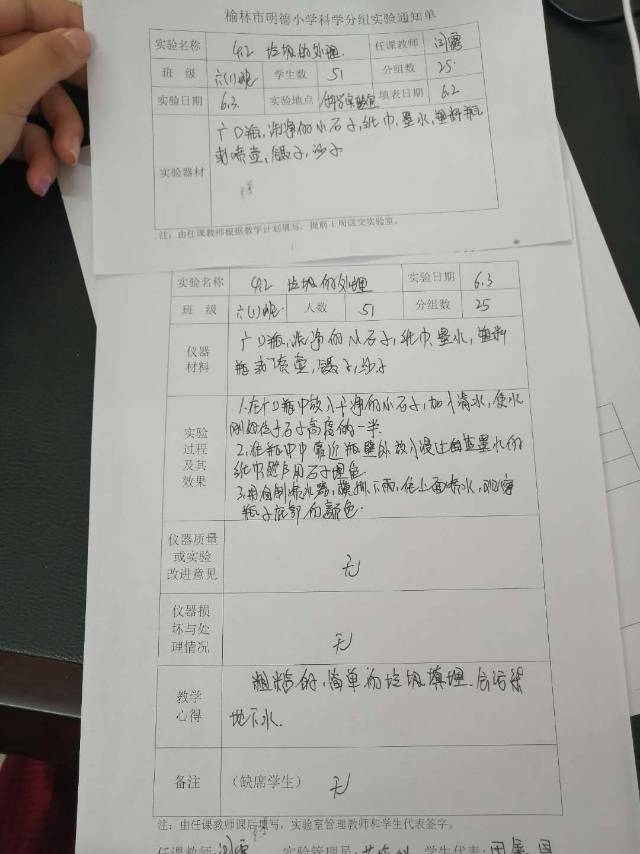 榆林市明德小学科学分组实验通知单
实验名称 4.2 垃圾的处理 任课教师 闫露
班级 六(1)班 学生数 51 分组数 25
实验日期 6.3 实验地点 科学实验室 填表日期 6.2
实验器材 广口瓶,洗净的小石子,纸巾,墨水,塑料瓶
喷壶,镊子,沙子
注:由任课教师根据教学计划填写,提前1周送交实验室。
实验名称 4.2 垃圾的处理 实验日期 6.3
班级 六(1)班 人数 51 分组数 25
仪器
材料
广口瓶,洗净的小石子,纸巾,墨水,塑料
瓶 喷壶,镊子,沙子
实验
过程
及其
效果
1.在广口瓶中放入干净的小石子,加入清水,使水
刚好位于石子高度的一半.
2.在瓶中靠近瓶壁处放入浸过 墨水的
纸巾 用石子
3.用自制喷水器,模拟下雨,在上面喷水,观察
瓶子底部的颜色.
仪器质量
或实验
改进意见
无
仪器损
坏与处
理情况
无
教学
心得
粗糙的,简单的垃圾填埋.会污染
地下水.
备注 (缺席学生) 无
注:由任课教师课后填写,实验室管理教师和学生代表签字。
任课教师 实验管理员: 学生代表: